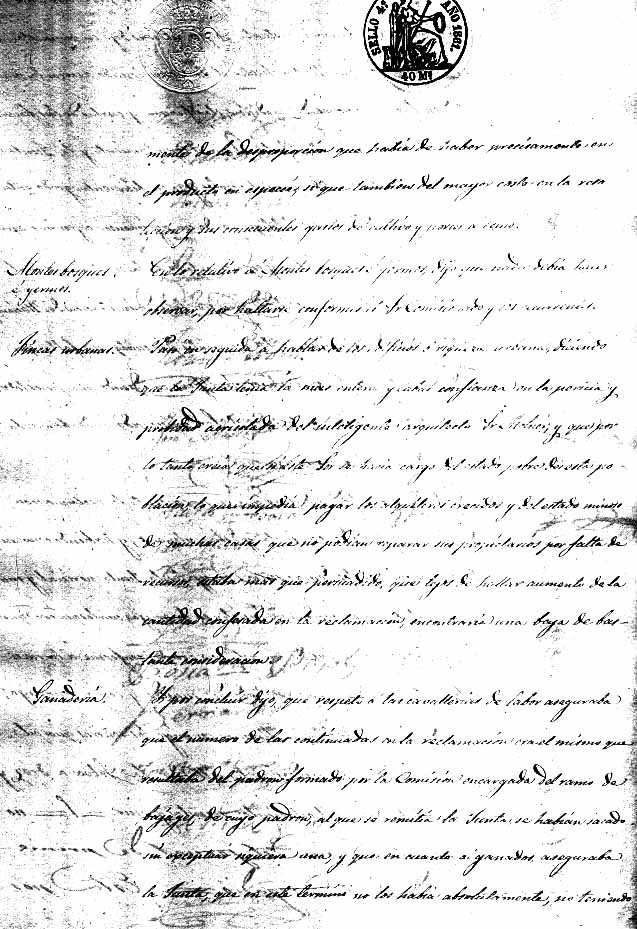 SELLO 4º AÑO 1861.
40 Ms
mente de la desproporcion que habia de haber precisamente en
el producto en especies, si que tambien del mayor costo en la reco
leccion y sus consiguientes gastos de cultivo y
Montes bosques,
é yermos.
En lo relativo á Montes bosques é yermos, dijo que nada debia hacer
observar, por hallarse conformes el Sr Comisionado y
Fincas urbanas.
Pasó en seguida á hablar de los edificios ó riqueza urbana, diciendo
que la Junta tenia la mas entera y cabal confianza en la pericia y
probidad acreditada del inteligente arquitecto Sr y que por
lo tanto creia que si este Sor se hacia cargo del estado pobre de esta po-
blacion, lo que impedia pagar los alquileres crecidos y del estado ruinoso
de muchas casas que no podian reparar sus propietarios por falta de
recursos, estaba mas que persuadido, que lejos de hallar aumento de la
cantidad confesada en la reclamacion, encontraria una baja de bas-
tante consideracion.
Ganaderia.
Y por concluir dijo, que respeto a las cavallerias de labor aseguraba
que el número de las continuadas en la reclamacion era el mismo que
resultaba del padron formado por la Comision encargada del ramo de
bajages, de cuyo padron, al que se remitia la Junta, se habian sacado
sin exceptuar siquiera una, y que en cuanto a ganados, aseguraba
la Junta, que en este termino no los habia absolutamente, no teniendo